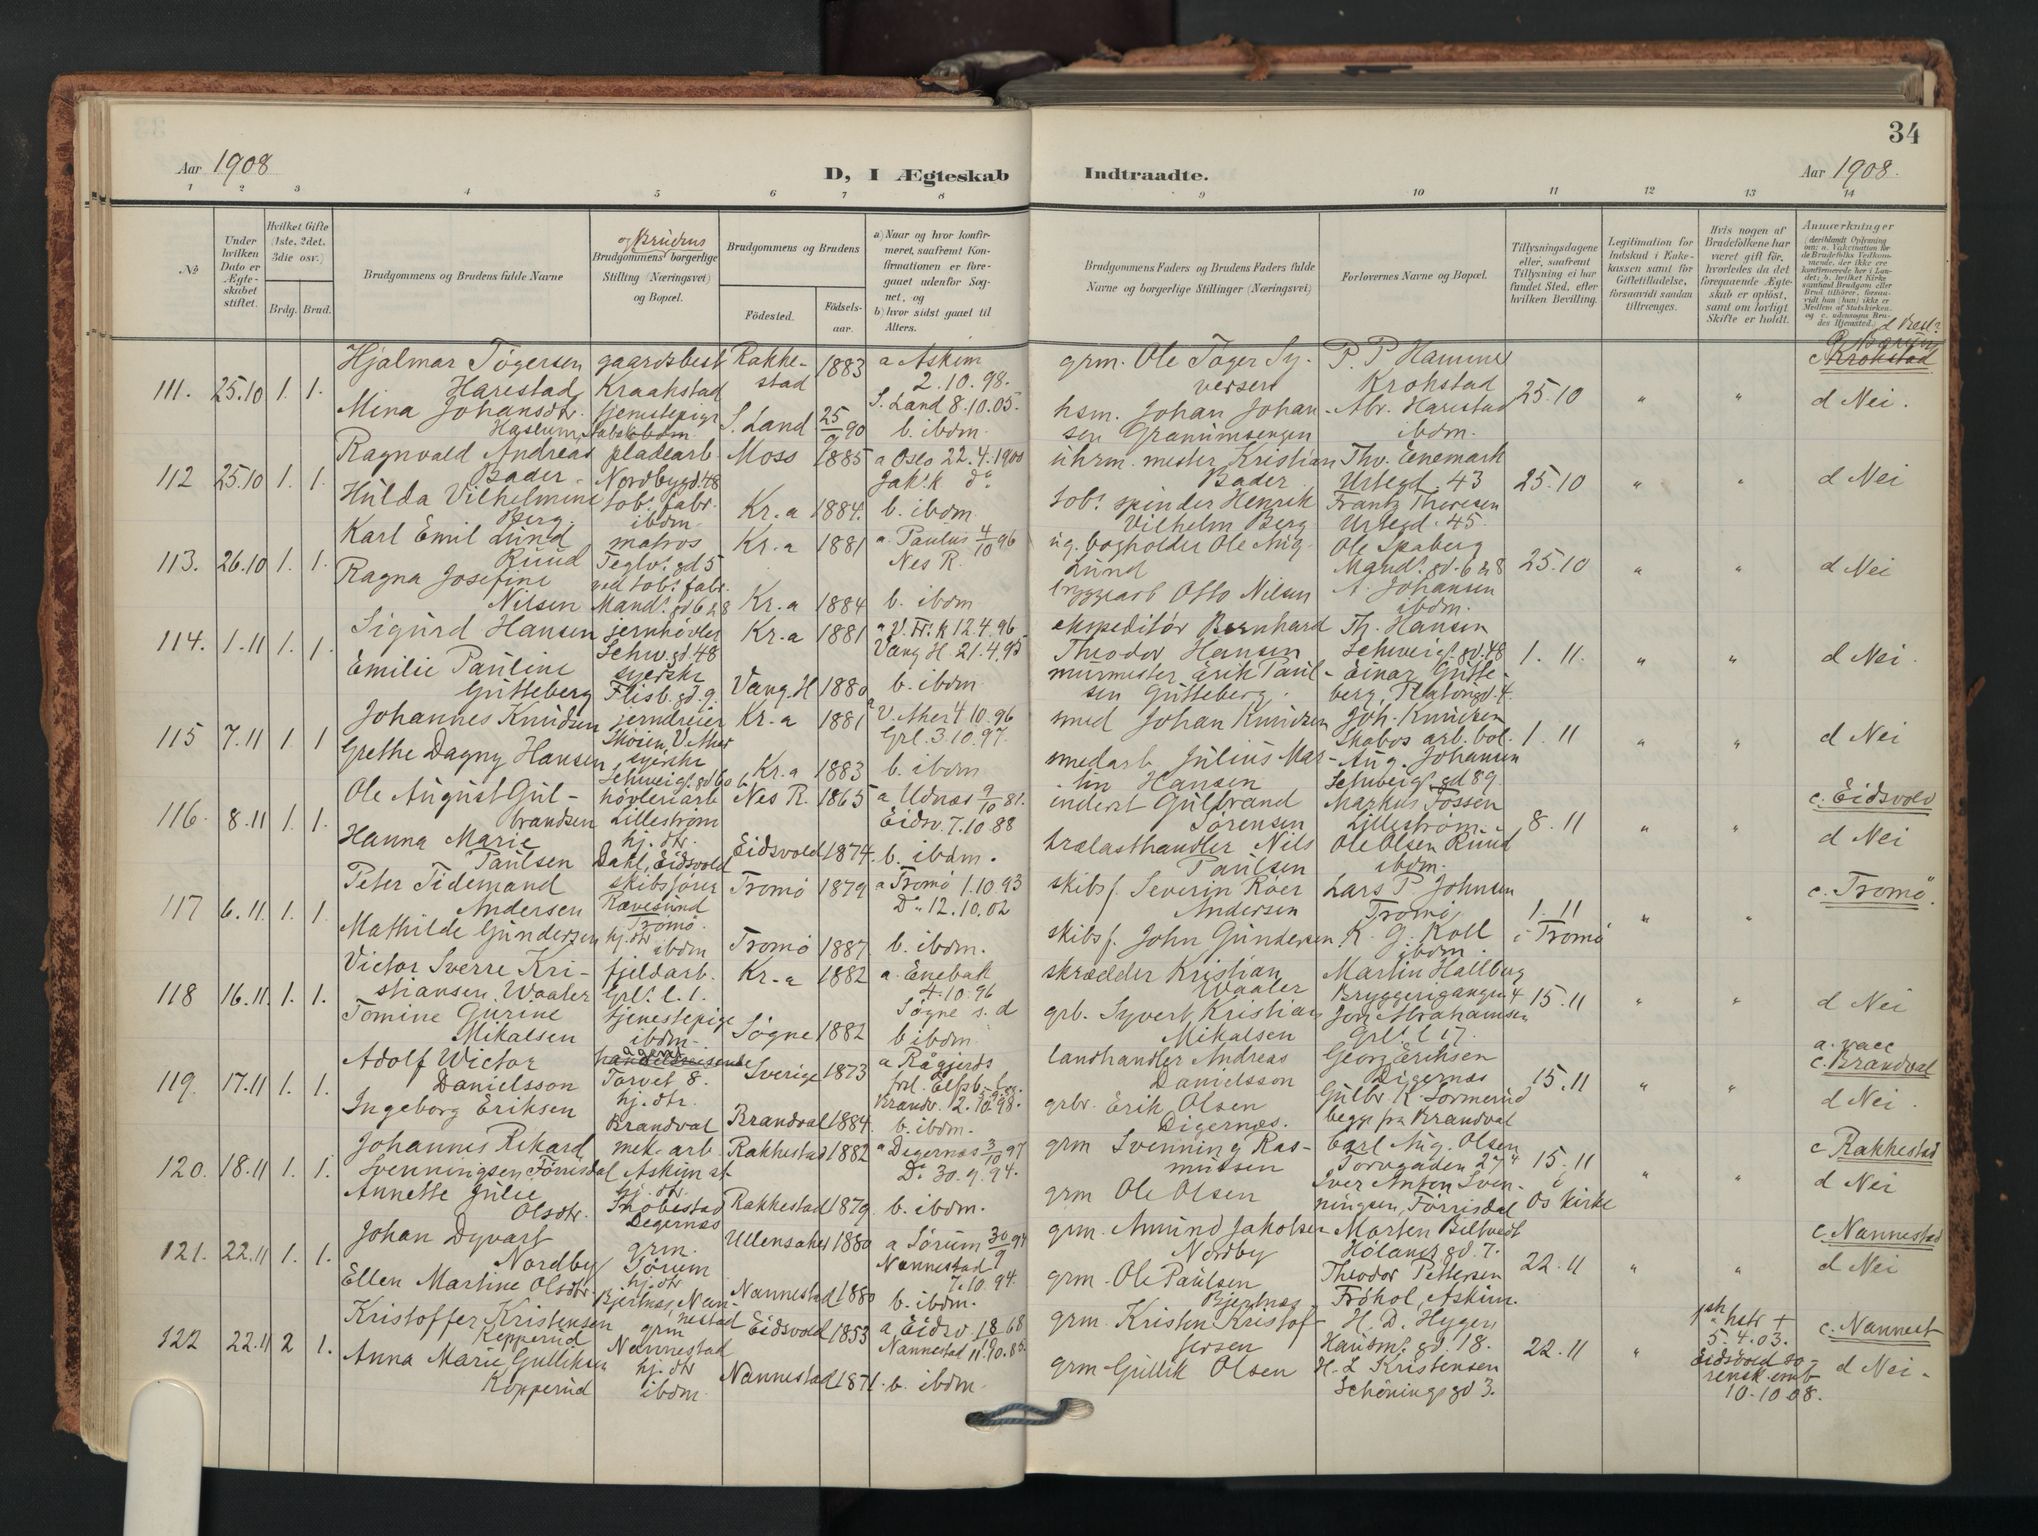 34
Aar 1908
D, I Ægteskab
Indtraadte.
Aar 1908.
1 2 3 4 5 6 7 8 9 10 11 12 13 14
No
Under hvilken Dato er Ægteskabet stiftet.
Hvilket Gifte (1ste, 2det, 3die osv.)
Brdg. Brud.
Brudgommens og Brudens fulde Navne
og Brudens
Brudgommens borgerlige Stilling (Næringsvei) og Bopæl.
Brudgommens og Brudens
Fødested.
Fødselsaar.
a) Naar og hvor konfirmeret, saafremt Konfirmationen er foregaaet udenfor Sognet, og
b) hvor sidst gaaet til Alters.
Brudgommens Faders og Brudens Faders fulde Navne og borgerlige Stillinger (Næringsvei)
Forlovernes Navne og Bopæl.
Tillysningsdagene eller, saafremt Tillysning ei har fundet Sted, efter hvilken Bevilling.
Legitimation for Indskud i Enkekassen samt for Giftetilladelse, forsaavidt saadan tiltrænges.
Hvis nogen af Brudefolkene har været gift før, hvorledes da det foregaaende Ægteskab er opløst, samt om lovligt Skifte er holdt.
Anmærkninger
111. 25.10 1. 1.
Hjalmar Tøgersen
Harestad
gaardsbest
Kraakstad
Rakkestad
1883
a Askim
2.10.98.
grm. Ole Tøger Syversen
P. P. Hamme
Krohstad
25.10 " " d Nei.
c Krohstad
Mina Johansdtr.
Haslum
tjenestepige
S. Land 25/9 90
S. Land 8.10.05.
b. ibdm.
hsm. Johan Johansen Granumsengen
Abr. Harestad
ibdm.
112 25.10 1. 1.
Ragnvald Andreas
Bader
pladearb.
Nordbygd. 48
Moss 1885
a Oslo 22.4.1900
Jak. k do
uhrm. mester Kristian
Bader.
Thv. Enemark
Urtegd. 43
25.10 " " d Nei
Hulda Vilhelmine
Berg.
tob. fabr.
ibdm.
Kr.a 1884.
b. ibdm.
tob. spinder Henrik
Vilhelm Berg
Frantz Thoresen
Urtegd. 45.
113. 26.10 1. 1.
Karl Emil Lund
Ruud
matros
Teglv. gd 5
Kr.a 1881
a. Paulus 4/10 96
Nes R.
ug. bogholder Ole Aug.
Lund
Ole Skaberg
Mands. gd. 6 & 8
25.10 " " d Nei
Ragna Josefine
Nilsen
ved tob. fabr.
Mands. gd 6 & 8
Kr.a 1884
b. ibdm
bryggearb Otto Nilsen
A. Johansen
ibdm.
114. 1.11 1. 1.
Sigurd Hansen
jernhøvler
Schw. gd. 48
Kr.a 1881
a V. Fr. k 12.4.96
Vang H. 21.4.95
ekspeditør Bernhard
Theodor Hansen
Th. Hansen
Schweigs. gd. 48
1. 11. " " d Nei.
Emilie Pauline
Gutteberg
syerske
Flisb. gd. 9.
Vang. H 1880
b. ibdm
murmester Erik Paulsen Gutteberg.
Einar Gutteberg, Platousgd. 4.
115 7.11 1. 1
Johannes Knudsen
jerndreier
Skøien, V. Aker
Kr.a 1881
a V. Aker 4 10.96
Grl. 3.10.97.
smed Johan Knudsen
Joh. Knudsen
Skabos arb. bol.
1. 11 " " d Nei
Grethe Dagny Hansen
syerske
Schweigs. gd 60 b
Kr.a 1883
b. ibdm
smedarb Julius Martin Hansen
Aug. Johansen
Schweigs. gd 89.
116. 8.11 1. 1.
Ole August Gulbrandsen
høvleriarb
Lillestrøm
Nes R. 1865
a Udnæs 9/10 81.
Eidsv. 7.10.88
inderst Gulbrand
Sørensen
Markus Fossen
Lillestrøm
8. 11 " "
c. Eidsvold
d Nei
Hanna Marie
Paulsen
hj. dtr.
Dahl, Eidsvold
Eidsvold 1874.
b. ibdm.
trælasthandler Nils
Paulsen
Ole Olsen Ruud
ibdm.
117 6.11 1. 1.
Peter Tidemand
Andersen
skibsfører
Rævesund
Tromø.
Tromø 1879
a Tromø 1.10.93
Do 12.10.02
skibsf. Severin Røer
Andersen
Lars P. Johnsen
Tromø
1. 11
i Tromø
" "
c. Tromø.
Mathilde Gundersen
hj. dtr
ibdm
Tromø 1887.
b. ibdm.
skibsf. John Gundersen
K. G. Koll
ibdm.
118 16.11. 1. 1.
Victor Sverre Kristiansen Waaler
fjeldarb.
Grl. l. 1.
Kr.a 1882
a. Enebak
4.10.96
skrædder Kristian
Waaler
Martin Hallberg
Bryggerigangen 4
15.11 " " d Nei
Tomine Gurine
Mikalsen
tjenestepige
ibdm.
Søgne 1882
Søgne s. d
b ibdm.
grb. Syvert Kristian
Mikalsen
Jon Abrahamsen
Grl. l 17.
119. 17.11 1. 1.
Adolf Wictor
Danielsson
agent
handelsreisende
Torvet 8.
Sverige 1873
a Rågjerds
landhandler Andreas
Danielsson
Georg Eriksen
Digernæs
15.11 " "
a. vacc
c. Brandval
d Nei.
Ingeborg Eriksen
hj. dtr.
Brandval
Brandval 1884.
Brandv. 12.10.98.
b. ibdm.
grbr. Erik Olsen
Digernæs.
Gulbr. K. Sormerud
begge fra Brandval
120. 18.11 1. 1.
Johannes Rikard
SvenningsenFørrisdal
mek. arb.
Askim st
Rakkestad 1882
a Degernæs 3/10 97
Do 30.9.94.
grm Svenning Rasmussen
Carl Aug. Olsen
Torvgaden 27 4
15.11
i
Os Kirke
" "
c Rakkestad
d Nei
Annette Julie
Olsdtr.
hj. dtr.
Degernæs
Rakkestad 1879
b. ibdm.
grm Ole Olsen
Iver Anton Svenningsen, Førrisdal
121. 22.11 1. 1.
Johan Dyvart
Nordby
grm.
Sørum
Ullensaker 1880
a Sørum 30/9 94
grm. Amund Jakobsen
Nordby
Morten Biltvedt
Hølands gd. 7.
22.11 " "
c. Nannestad
d Nei
Ellen Martine Olsdtr.
hj. dtr
Bjertnes, Nannestad
Nannestad 1880
Nannestad
7.10.94.
b. ibdm.
grm. Ole Paulsen
Bjertnæs
Theodor Pettersen
Frøhol, Askim.
122 22.11 2 1.
Kristoffer Kristensen
Kopperud
grm
Nannestad
Eidsvold 1853
a Eidsv. 1868
Nannestad 11.10.85.
grm. Kristen Kristoffersen
H. D. Hygen
Hausm. gd. 18.
22.11 "
1ste hstr +
5.4.03.
Eidsvold sorensk. emb
10.10 08.
c. Nannest
d Nei.
Anna Marie Gulliksen
Kopperud
hj. dtr
ibdm.
Nannestad 1871.
b. ibdm.
grm Gullik Olsen
H. L. Kristensen
Schøningsgd 3.